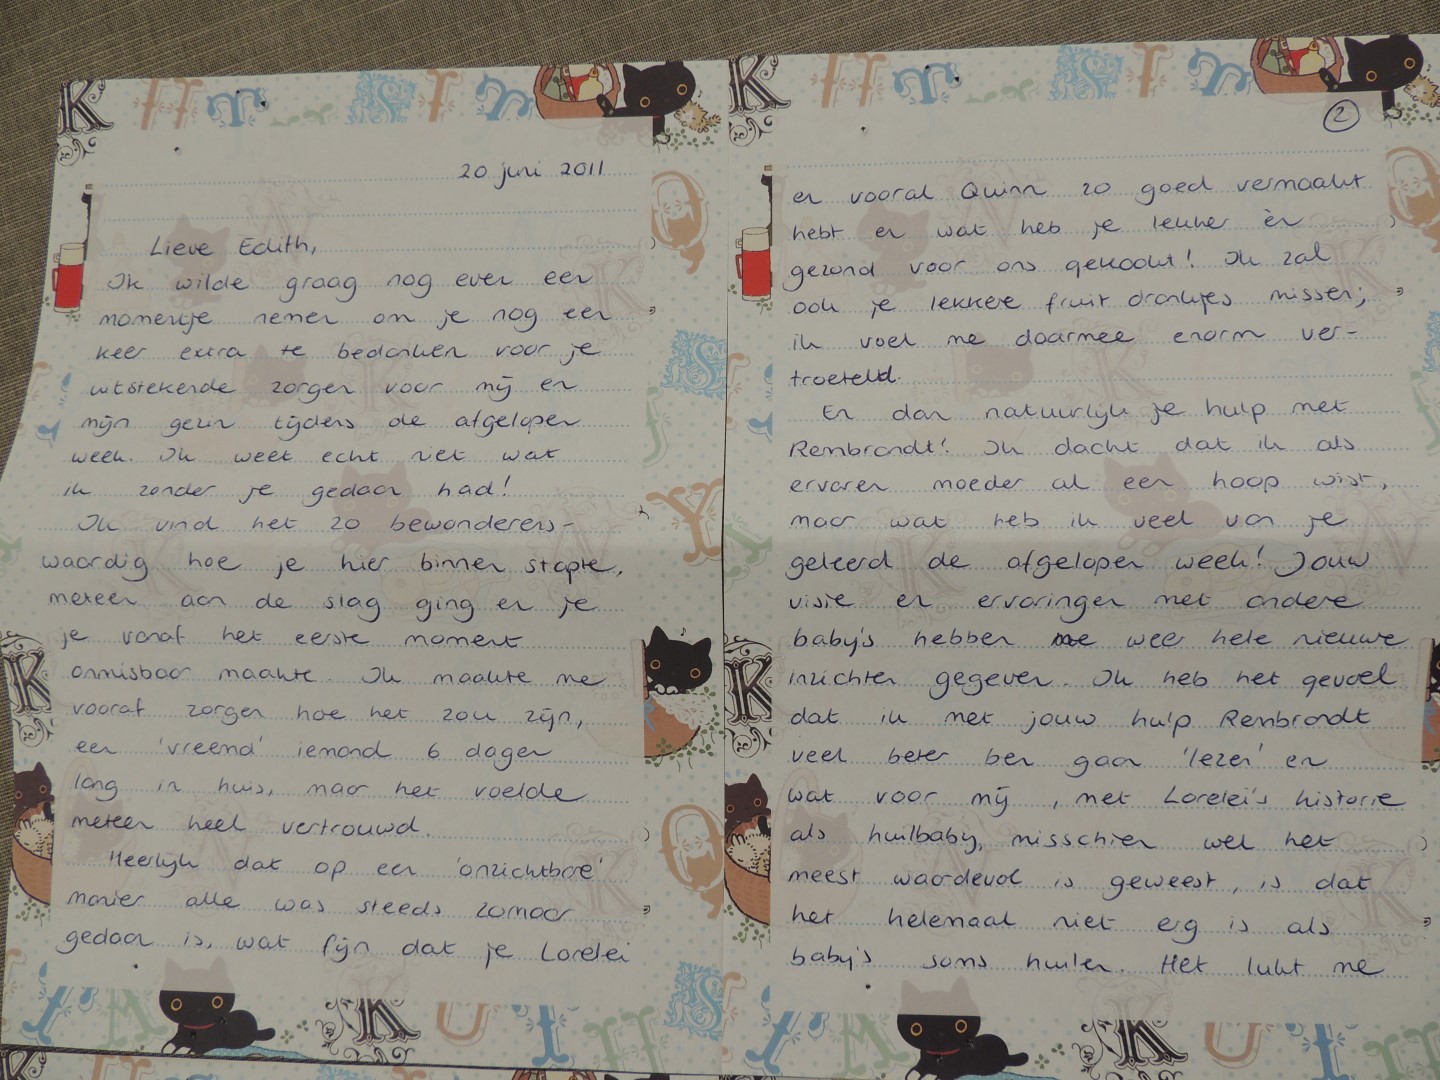 20 juni 2011
Lieve Edith,
Ik wilde graag nog even een
momentje nemen om je nog een
keer extra te bedanken voor je
uitstekende zorgen voor mij en
mijn gezin tijdens de afgelopen
week. Ik weet echt niet wat
ik zonder je gedaan had!
Ik vind het zo bewonderens-
waardig hoe je hier binnen stapte,
meteen aan de slag ging en je
je vanaf het eerste moment
onmisbaar maakte. Ik maakte me
vooraf zorgen hoe het zou zijn,
een 'vreemd' iemand 6 dagen
lang in huis, maar het voelde
meteen heel vertrouwd.
Heerlijk dat op een 'onzichtbare'
manier alle was steeds zomaar
gedaan is, wat fijn dat je Lorelei
2
en vooral Quinn zo goed vermaakt
hebt en wat heb je lekker èn
gezond voor ons gekookt! Ik zal
ook je lekkere fruit drankjes missen;
ik voel me daarmee enorm ver-
troeteld.
En dan natuurlijk je hulp met
Rembrandt! Ik dacht dat ik als
ervaren moeder al een hoop wist,
maar wat heb ik veel van je
geleerd de afgelopen week! Jouw
visie en ervaringen met andere
baby's hebben me weer hele nieuwe
inzichten gegeven. Ik heb het gevoel
dat ik met jouw hulp Rembrandt
veel beter ben gaan 'lezen' en
wat voor mij, met Lorelei's historie
als huilbaby, misschien wel het
meest waardevol is geweest, is dat
het helemaal niet erg is als
baby's soms huilen. Het lukt me